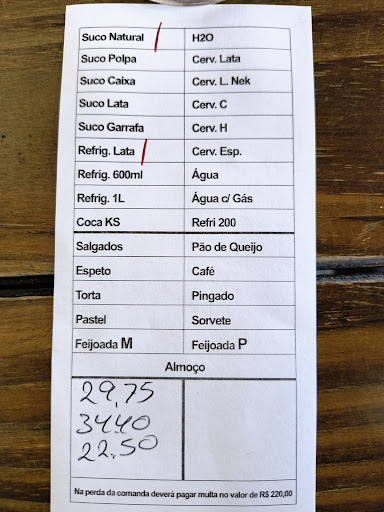 Suco Natural / H2O
Suco Polpa Cerv. Lata
Suco Caixa Cerv. L. Nek
Suco Lata Cerv. C
Suco Garrafa Cerv. H
Refrig. Lata / Cerv. Esp.
Refrig. 600ml Água
Refrig. 1L Água c/ Gás
Coca KS Refri 200
Salgados Pão de Queijo
Espeto Café
Torta Pingado
Pastel Sorvete
Feijoada M Feijoada P
Almoço
29,75
34,40
22,50
Na perda da comanda deverá pagar multa no valor de R$ 220,00